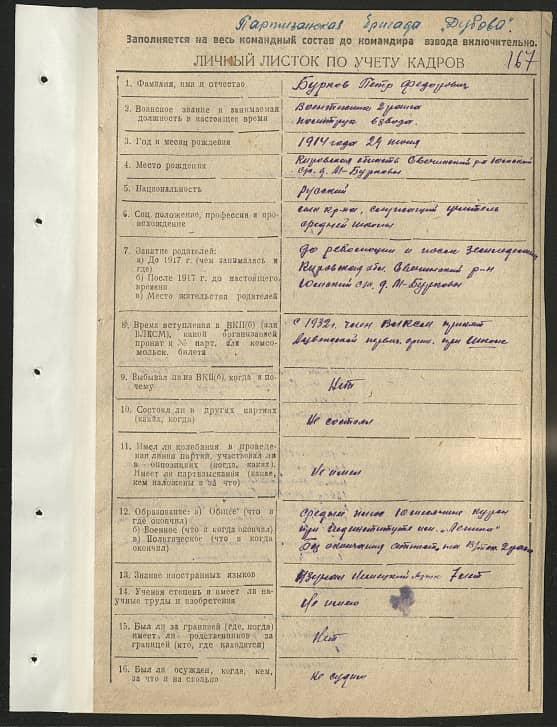 Партизанская бригада "Дубова".
Заполняется на весь командный состав до командира взвода включительно.
ЛИЧНЫЙ ЛИСТОК ПО УЧЕТУ КАДРОВ
167
1. Фамилия, имя и отчество
Бурков Петр Федорович
2. Воинское звание и занимаемая
должность в настоящее время
Воентехник 2 ранга
политрук взвода.
3. Год и месяц рождения
1914 года 29 июня
4. Место рождения
Кировская область Свечинский р-н Юмский
с/с. д. М-Бурковы
5. Национальность
русский
6. Соц. положение, профессия и про-
исхождение
сын кр-на, служащий учитель
средней школы
7. Занятие родителей:
а) До 1917 г. (чем занимались и
где)
б) После 1917 г. до настоящего
времени
в) Место жительства родителей
до революции и после земледелие
Кировская обл. Свечинский р-н
Юмский с/с. д. М-Бурковы
8. Время вступления в ВКП(б) (или
ВЛКСМ), какой организацией
принят и № парт. или комсо-
мольск. билета
с 1932 г. член ВЛКСМ принят
первич. орг. при школе
9. Выбывал ли из ВКП(б), когда и по-
чему
Нет
10. Состоял ли в других партиях
(каких, когда)
Не состоял
11. Имел ли колебания в проведе-
нии линии партии, участвовал ли
в оппозициях (когда, каких).
Имеет ли партвзыскания (какие,
кем наложены и за что)
Не имел
12. Образование: а) Общее (что и
где окончил)
б) Военное (что и когда окончил)
в) Политическое (что и когда
окончил)
Среднее,
при Пединституте им. "Ленина"
2 ранга
13. Знание иностранных языков
Изучал Немецкий язык 7 лет
14. Ученая степень и имеет ли на-
учные труды и изобретения
Не имею
15. Был ли за границей (где, когда)
имеет ли родственников за
границей (кто, где находятся)
Нет
16. Был ли осужден, когда, кем,
за что и на сколько
Не судим